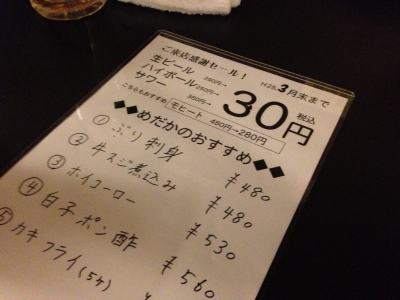 ご来店感謝セール!
H25.3月末まで
生ビール
ハイボール
サワー
30円 税込
こちらもおすすめ モヒート 480円→280円
◆◆めだかのおすすめ◆◆
① ぶり刺身 ¥480
② 牛スジ煮込み ¥480
③ ホイコーロー ¥530
④ 白子ポン酢 ¥560
⑤ カキフライ(5ケ) ¥